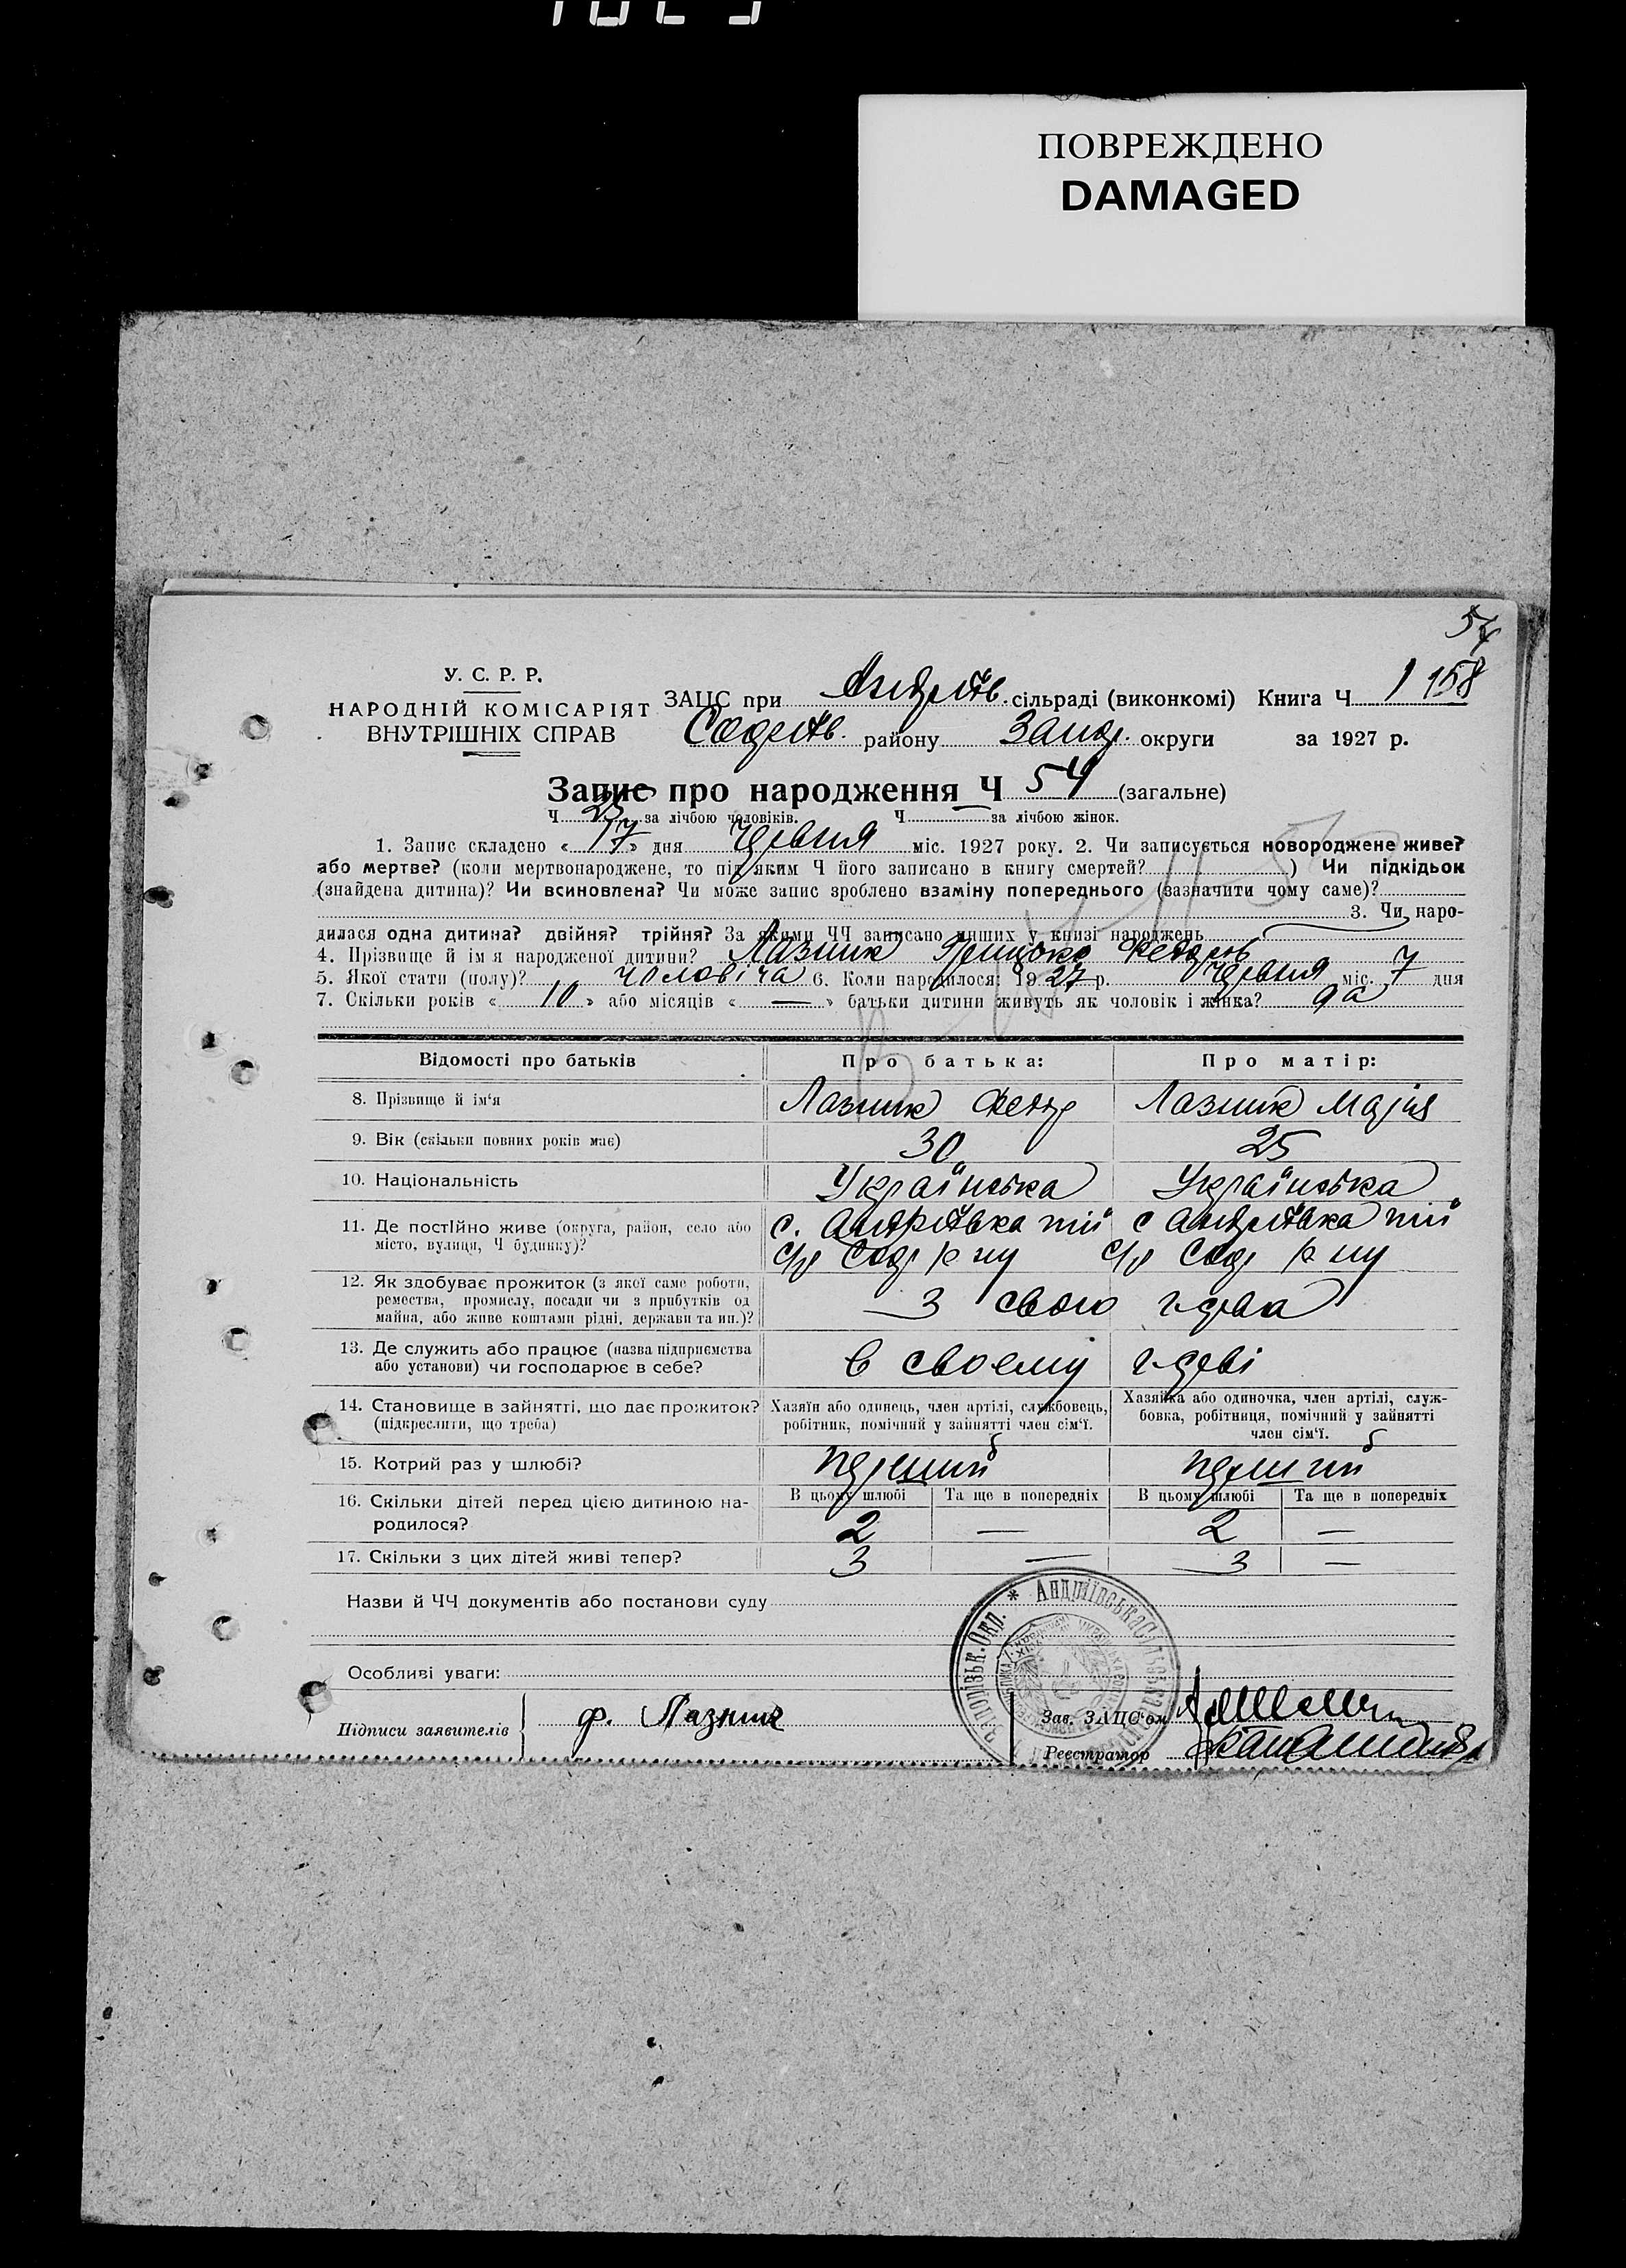 ПОВРЕЖДЕНО
DAMAGED
У. С. Р. Р.
НАРОДНІЙ КОМІСАРІЯТ
ВНУТРІШНІХ СПРАВ
ЗАЦС при Андріїв. сільраді (виконкомі) Книга Ч 1 158
району округи за 1927 р.
Запис про народження Ч 54 (загальне)
Ч 25 за лічбою чоловіків. Ч за лічбою жінок.
1. Запис складено « 17 » дня Червня міс. 1927 року. 2. Чи записується новороджене живе?
або мертве? (коли мертвонароджене, то під яким Ч його записано в книгу смертей? ) Чи підкідьок
(знайдена дитина)? Чи всиновлена? Чи може запис зроблено взаміну попереднього (зазначити чому саме)?
3. Чи наро-
дилася одна дитина? двійня? трійня? За якими ЧЧ записано инших у книзі народжень
4. Прізвище й ім'я народженої дитини? Лазник Грицько Федоров
5. Якої стати (полу)? чоловіча 6. Коли народилося: 1927 р. Червня міс. 7 дня
7. Скільки років « 10 » або місяців « — » батьки дитини живуть як чоловік і жінка? да
Відомості про батьків Про батька: Про матір:
8. Прізвище й ім'я Лазник Федор Лазник Марія
9. Вік (скільки повних років має) 30 25
10. Національність Українська Українська
11. Де постійно живе (округа, район, село або с. Андріївка тій с Андріївка тій
місто, вулиця, Ч будинку)? с/р р ну с/р р ну
12. Як здобуває прожиток (з якої саме роботи,
ремества, промислу, посади чи з прибутків од З свого г-дрва
майна, або живе коштами рідні, держави та ин.)?
13. Де служить або працює (назва підприємства
або установи) чи господарює в себе? в своему г-дрві
14. Становище в зайнятті, що дає прожиток? Хазяїн або одинець, член артілі, службовець, Хазяйка або одиночка, член артілі, служ-
(підкреслити, що треба) робітник, помічний у зайнятті член сім'ї. бовка, робітниця, помічний у зайнятті
член сім'ї.
15. Котрий раз у шлюбі? перший перший
16. Скільки дітей перед цією дитиною на- В цьому шлюбі Та ще в попередніх В цьому шлюбі Та ще в попередніх
родилося? 2 — 2 —
17. Скільки з цих дітей живі тепер? 3 — 3 —
Назви й ЧЧ документів або постанови суду
Особливі уваги:
Підписи заявителів ф. Лазник Зав. ЗАЦС'ом
Реєстратор